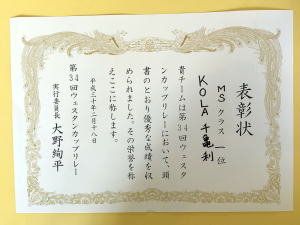 表彰状
MSクラス 一位
KOLA 千亀利
貴チームは第34回ウェスタ
ンカップリレーにおいて、頭
書のとおり優秀な成績を収
められました。その栄誉を称
えここに称します。
平成三十年二月十八日
第34回ウェスタンカップリレー
実行委員長 大野絢平